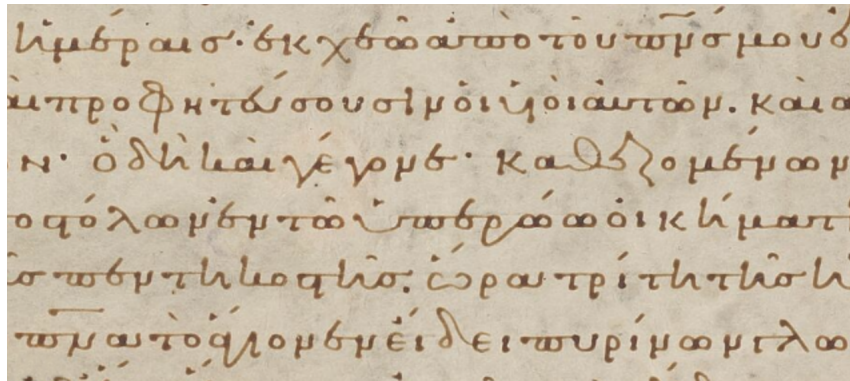 ἡμέραις· ἐκχεῶ ἀπὸ τοῦ πν̅ς μου ἐ
αὶ προφητεύσουσιν οἱ υἱοὶ αὐτῶν. καὶ α
ν· ὃ δὴ καὶ γέγονε· καθεζομένων
οστόλων ἐν τῶ ὑπερώω οἰκήματι
ς πεντηκοστῆς. ὥρα τρίτη τῆς ἡ
πν̅α τὸ ἅγιον ἐν εἴδει πυρίνων γλω